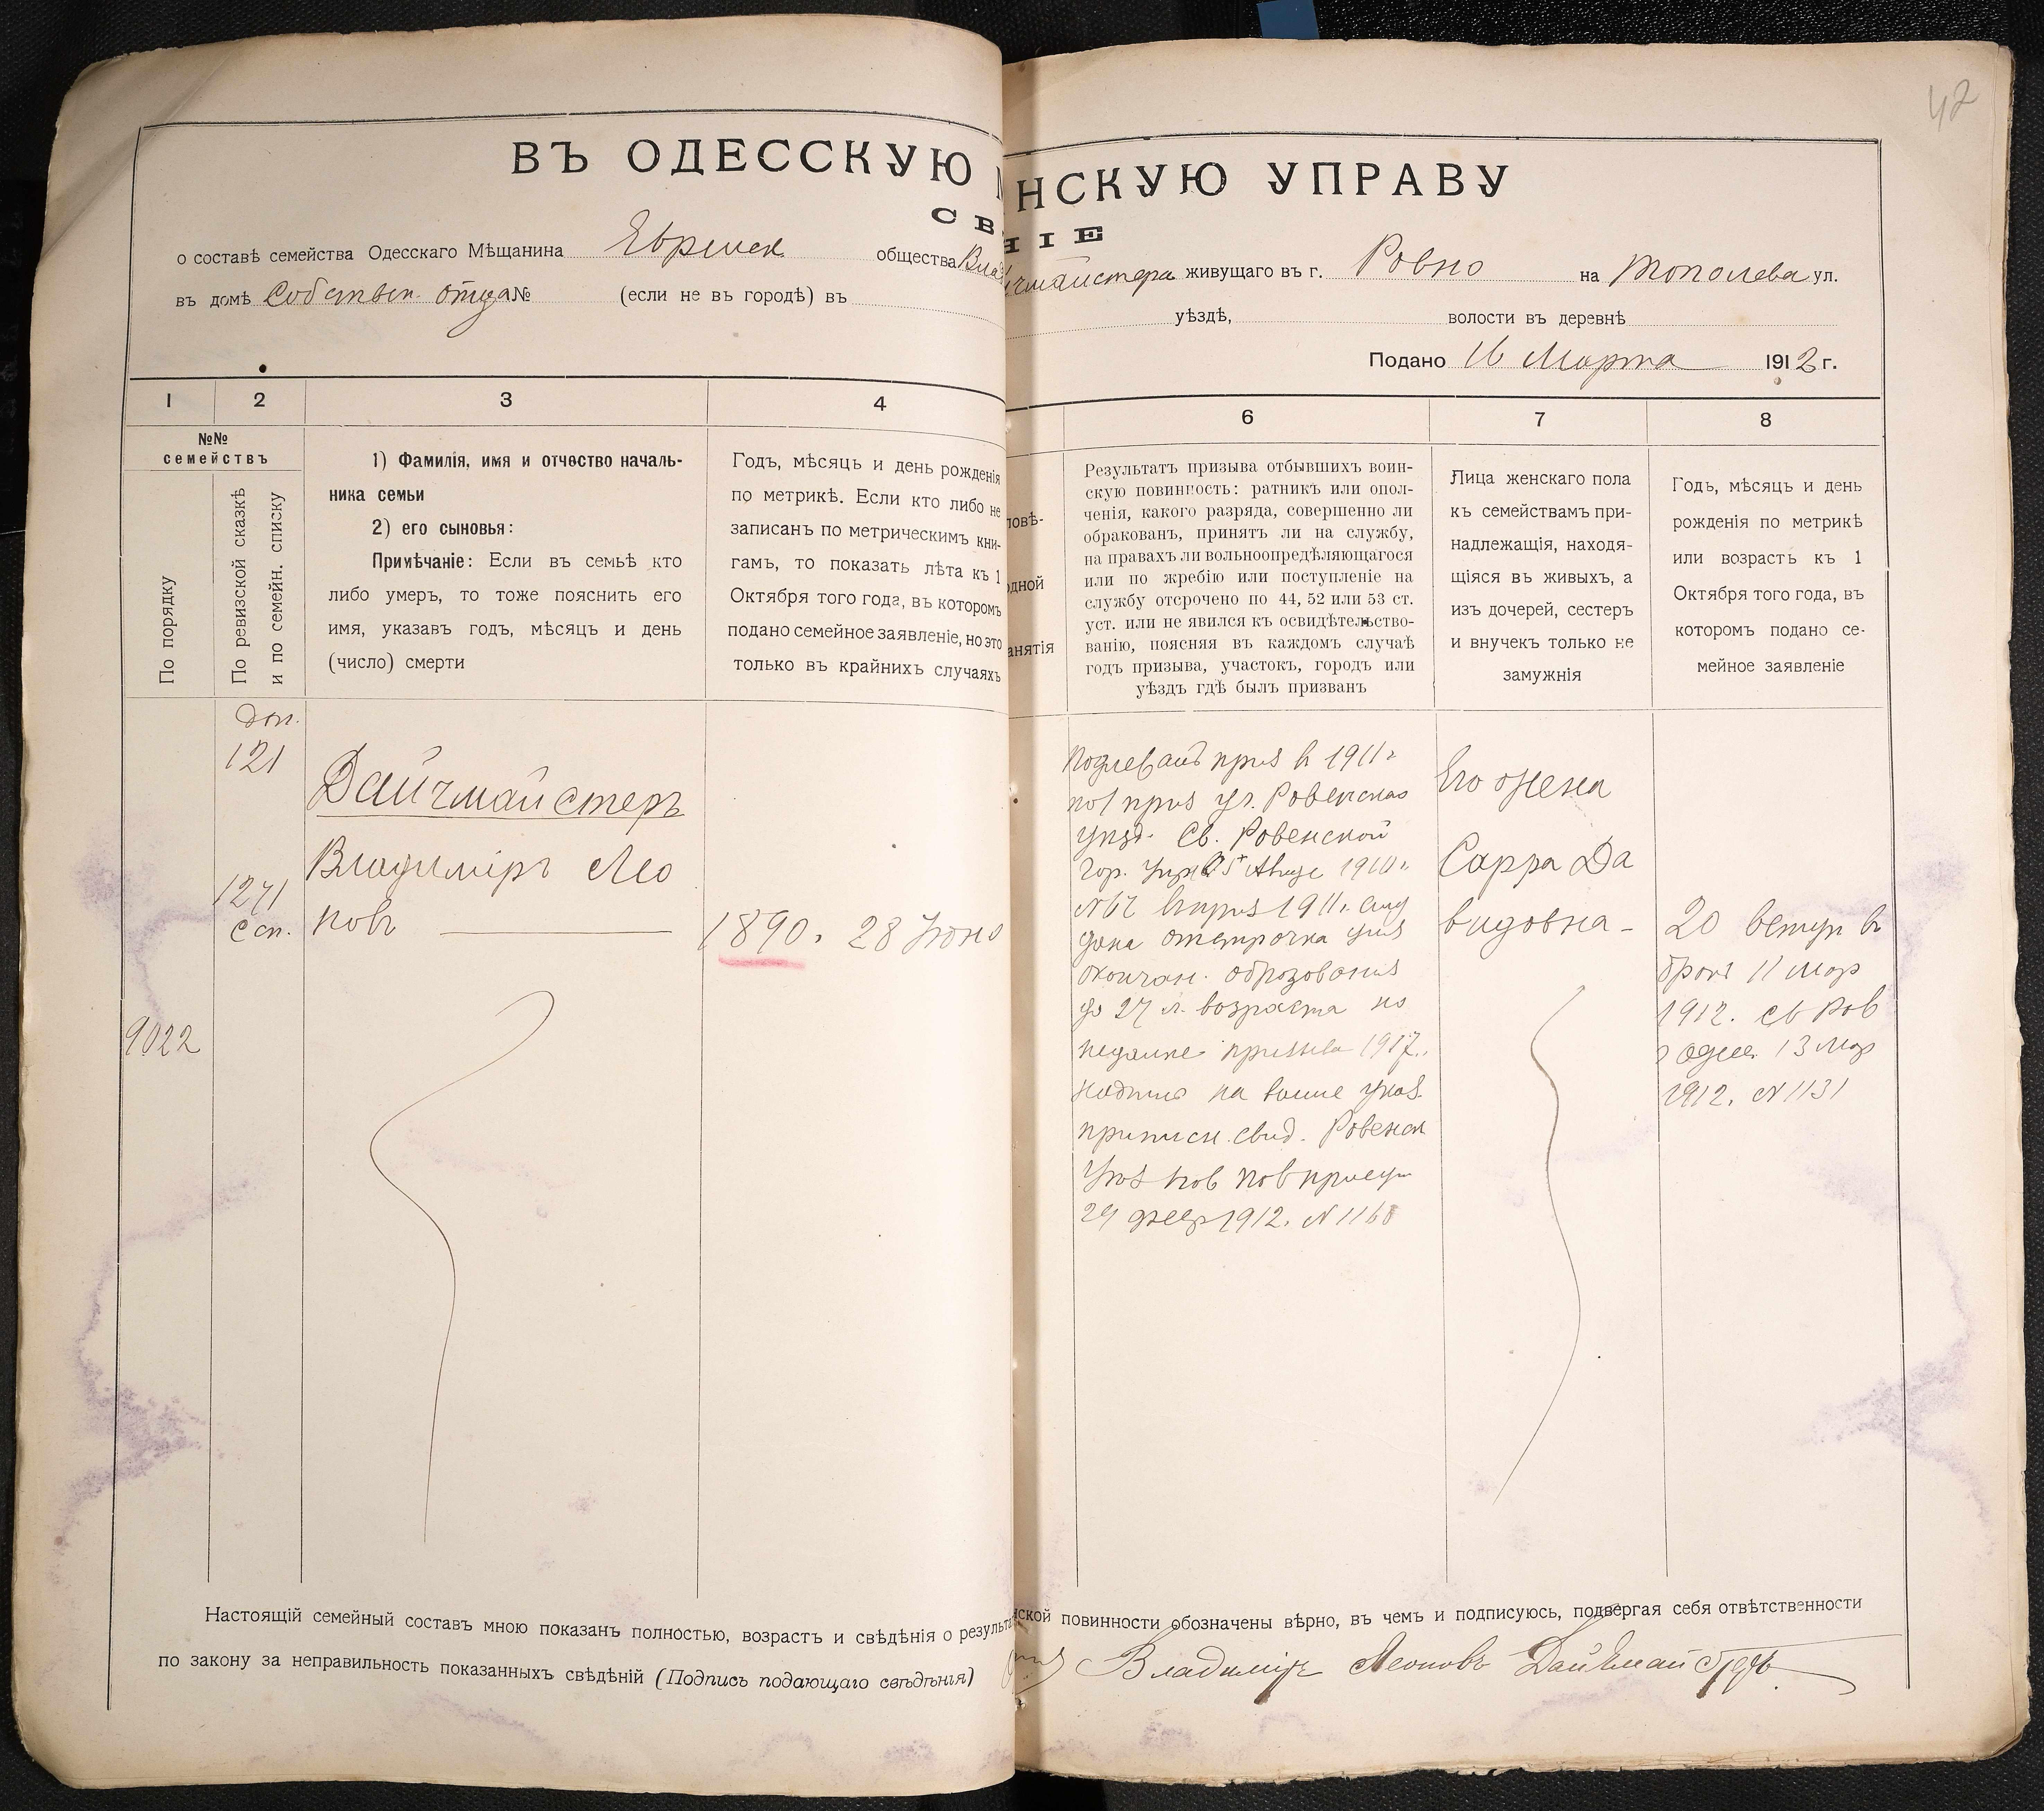 42
ВЪ ОДЕССКУЮ
НСКУЮ УПРАВУ
СВ
НІЕ
о составѣ семейства Одесскаго Мѣщанина Еврейск общества Вла
чмайстера живущаго въ г. Ровно на Тополева ул.
въ домѣ Собствен. отца № (если не въ городѣ) въ
уѣздѣ, волости въ деревнѣ
Подано 16 Марта 1912 г.
1 2 3 4
№№
семействъ
По порядку
По ревизской сказкѣ
и по семейн. списку
1) Фамилія, имя и отчество началь-
ника семьи
2) его сыновья:
Примѣчаніе: Если въ семьѣ кто
либо умеръ, то тоже пояснить его
имя, указавъ годъ, мѣсяцъ и день
(число) смерти
Годъ, мѣсяцъ и день рожденія
по метрикѣ. Если кто либо не
записанъ по метрическимъ кни-
гамъ, то показать лѣта къ 1
Октября того года, въ которомъ
подано семейное заявленіе, но это
только въ крайнихъ случаяхъ
6 7 8
повѣ-
одной
анятія
Результатъ призыва отбывшихъ воин-
скую повинность: ратникъ или опол-
ченія, какого разряда, совершенно ли
обракованъ, принятъ ли на службу,
на правахъ ли вольноопредѣляющагося
или по жребію или поступленіе на
службу отсрочено по 44, 52 или 53 ст.
уст. или не явился къ освидѣтельство-
ванію, поясняя въ каждомъ случаѣ
годъ призыва, участокъ, городъ или
уѣздъ гдѣ былъ призванъ
Лица женскаго пола
къ семействамъ при-
надлежащія, находя-
щіяся въ живыхъ, а
изъ дочерей, сестеръ
и внучекъ только не
замужнія
Годъ, мѣсяцъ и день
рожденія по метрикѣ
или возрастъ къ 1
Октября того года, въ
которомъ подано се-
мейное заявленіе
доп.
121
1271
с сп.
9022
Дайчмайстеръ
Владиміръ Лео
новъ
1890. 28 Іюня
приз в 1911 г
приз уч. Ровенскаго
уѣзд. Св. Ровенской
Гор. 1910 г.
№62 1911 г.
дана отсрочка для
окончан. образованія
до 27 л. возраста
призыва 1917 г.
на выше указ.
приписн. свид. Ровенск
29 февр 1912. №1168
Его жена
Сарра Да
видовна -
20 вступ въ
бракъ 11 мар
1912. св Ров
13 мар
1912. №1131
Настоящій семейный составъ мною показанъ полностью, возрастъ и свѣдѣнія о результа
нской повинности обозначены вѣрно, въ чемъ и подписуюсь, подвергая себя отвѣтственности
по закону за неправильность показанныхъ свѣдѣній (Подпись подающаго свѣдѣнія)
Владиміръ Леоновъ Дайчмайстеръ